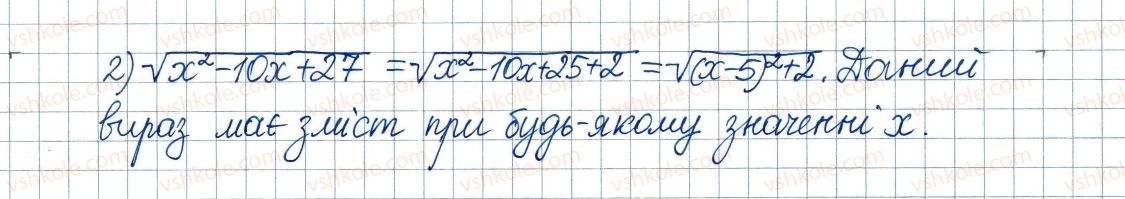 2) √(x²-10x+27) = √(x²-10x+25+2) = √((x-5)²+2). Даний
вираз має зміст при будь-якому значенні x.